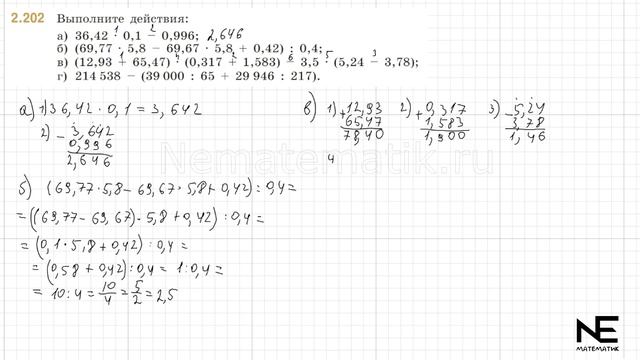 2.202 Выполните действия:
а) 36,42 · 0,1 − 0,996; 2,646
б) (69,77 · 5,8 − 69,67 · 5,8 + 0,42) : 0,4;
в) (12,93 + 65,47) · (0,317 + 1,583) − 3,5 · (5,24 − 3,78);
г) 214 538 − (39 000 : 65 + 29 946 : 217).
а) 1) 36,42 · 0,1 = 3,642
2) − 3,642
0,996
2,646
б) (69,77 · 5,8 − 69,67 · 5,8 + 0,42) : 0,4 =
= ((69,77 − 69,67) · 5,8 + 0,42) : 0,4 =
= (0,1 · 5,8 + 0,42) : 0,4 =
= (0,58 + 0,42) : 0,4 = 1 : 0,4 =
= 10 : 4 = 10/4 = 5/2 = 2,5
в) 1) + 12,93
65,47
78,40
2) + 0,317
1,583
1,900
3) − 5,24
3,78
1,46
4
Nematematik.ru
NE
МАТЕМАТИК